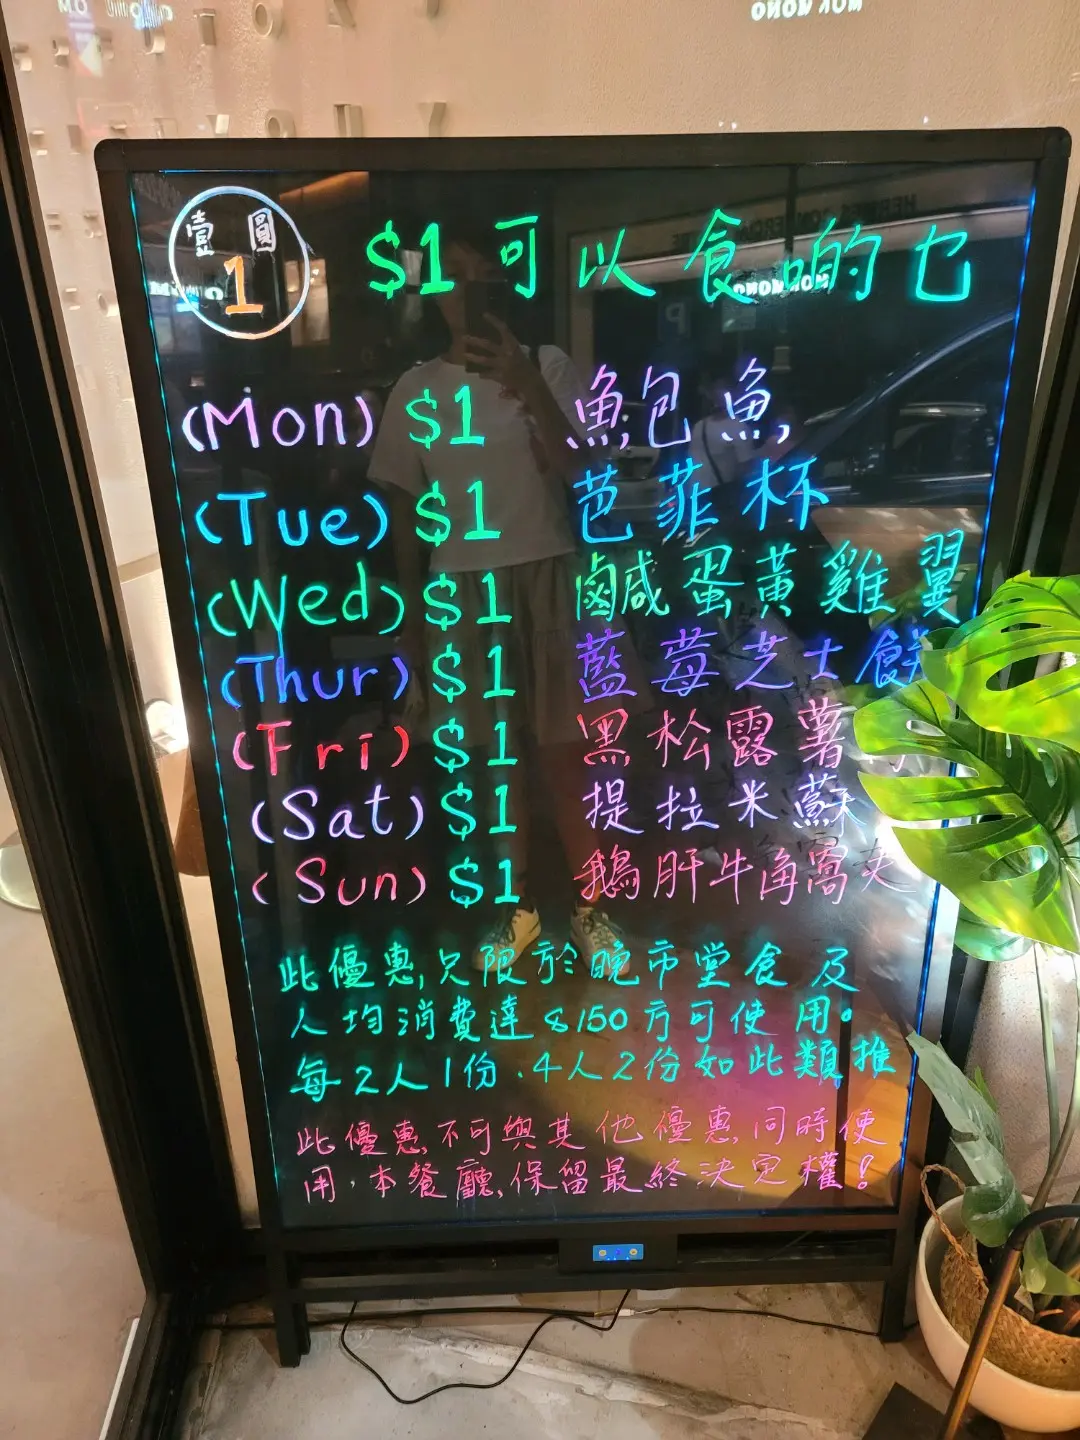 壹圓
1
$1 可以食啲乜
(Mon) $1 鮑魚
(Tue) $1 芭菲杯
(Wed) $1 鹹蛋黃雞翼
(Thur) $1 藍莓芝士餅
(Fri) $1 黑松露薯
(Sat) $1 提拉米蘇
(Sun) $1 鵝肝牛角窩夫
此優惠只限於晚市堂食及
人均消費達$150方可使用。
每2人1份、4人2份如此類推
此優惠不可與其他優惠同時使
用,本餐廳保留最終決定權!